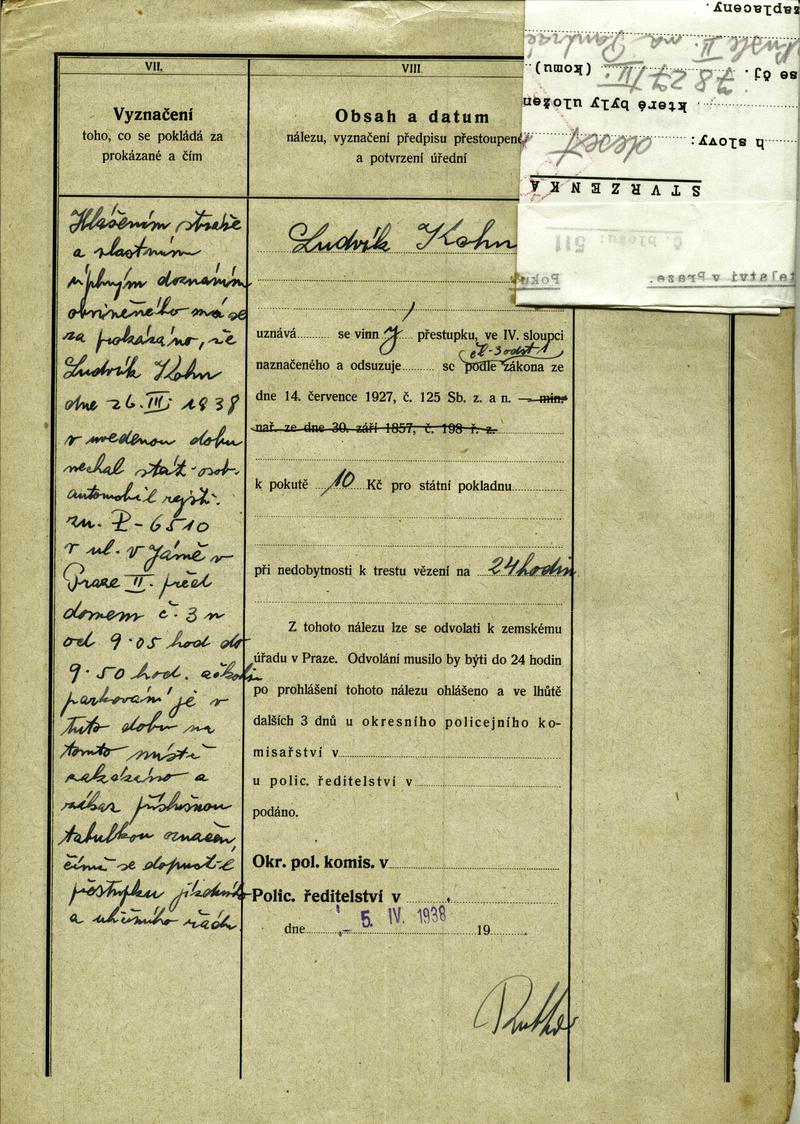 VII.
Vyznačení
toho, co se pokládá za
prokázané a čím
Hlášením stráže
a vlastním
úplným doznáním
obviněného má se
za prokázáno, že
Ludvík Kohn
dne 26. III. 1938
v uvedenou dobu
nechal stát osob.
automobil rejstř.
zn. P-6510
v ul. v Jámě v
Praze II. před
domem č. 3 n
od 9.05 hod do
9.50 hod. ačkoliv
parkování je v
tuto dobu na
tomto místě
zakázáno a
zákaz příslušnou
tabulkou označen,
čímž se dopustil
přestupku jízdního
a uličního řádu.
VIII
Obsah a datum
nálezu, vyznačení předpisu přestoupené
a potvrzení úřední
Ludvík Kohn
uznává se vinný přestupku, ve IV. sloupci
naznačeného a odsuzuje se podle čl. 3 odst 1 zákona ze
dne 14. července 1927, č. 125 Sb. z. a n. min.
nař. ze dne 30. září 1857, č. 198 ř. z.
k pokutě 10 Kč pro státní pokladnu
při nedobytnosti k trestu vězení na 24 hodin
Z tohoto nálezu lze se odvolati k zemskému
úřadu v Praze. Odvolání musilo by býti do 24 hodin
po prohlášení tohoto nálezu ohlášeno a ve lhůtě
dalších 3 dnů u okresního policejního ko-
misařství v
u polic. ředitelství v
podáno.
Okr. pol. komis. v
Polic. ředitelství v
dne 5. IV. 1938 19
telství v Praze. Pokut
Č. bloku: 511
STVRZENKA
h slovy: deset
které byly uložen
se čj. 7827/III. (komu)
Nusle II. na
zaplaceny.